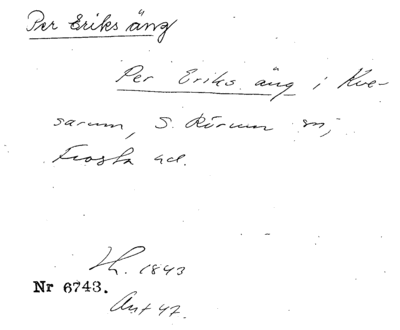 Per Eriks äng
Per Eriks äng i Kve-
sarum, S. Rörum sn,
Frosta hd.
Lh. 1843
Nr 6743.
Ant 47.